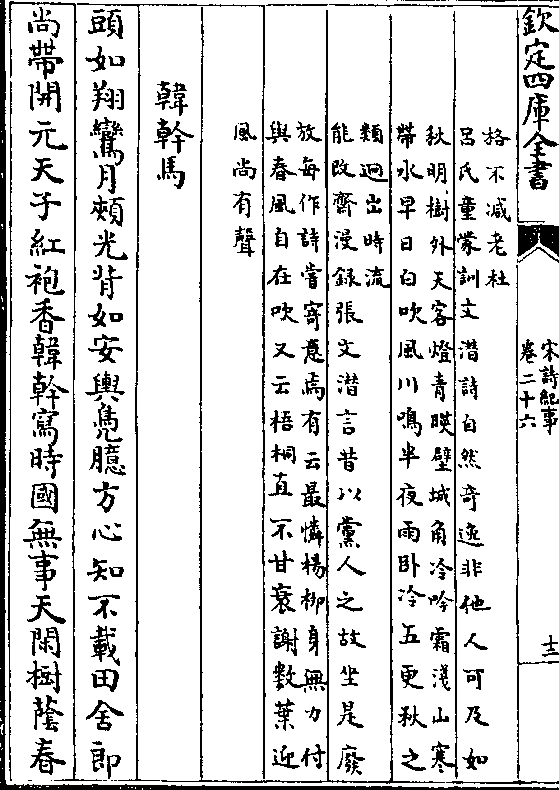 欽定四庫全書
宋詩紀事
卷二十六
格不減老杜
呂氏童蒙訓文潛詩自然奇逸非他人可及如
秋明樹外天客燈青暎壁城角冷吟霜淺山寒
帶水早日白吹風川鳴半夜雨卧冷五更秋之
類迥出時流
能改齋漫錄張文潛言昔以黨人之故坐是廢
放每作詩嘗寄意焉有云最憐楊柳身無力付
與春風自在吹又云梧桐直不甘衰謝數葉迎
風尚有聲
韓幹馬
頭如翔鸞月頰光背如安輿鳧臆方心知不載田舍郎
尚帶開元天子紅袍香韓幹寫時國無事天閑樹蔭春